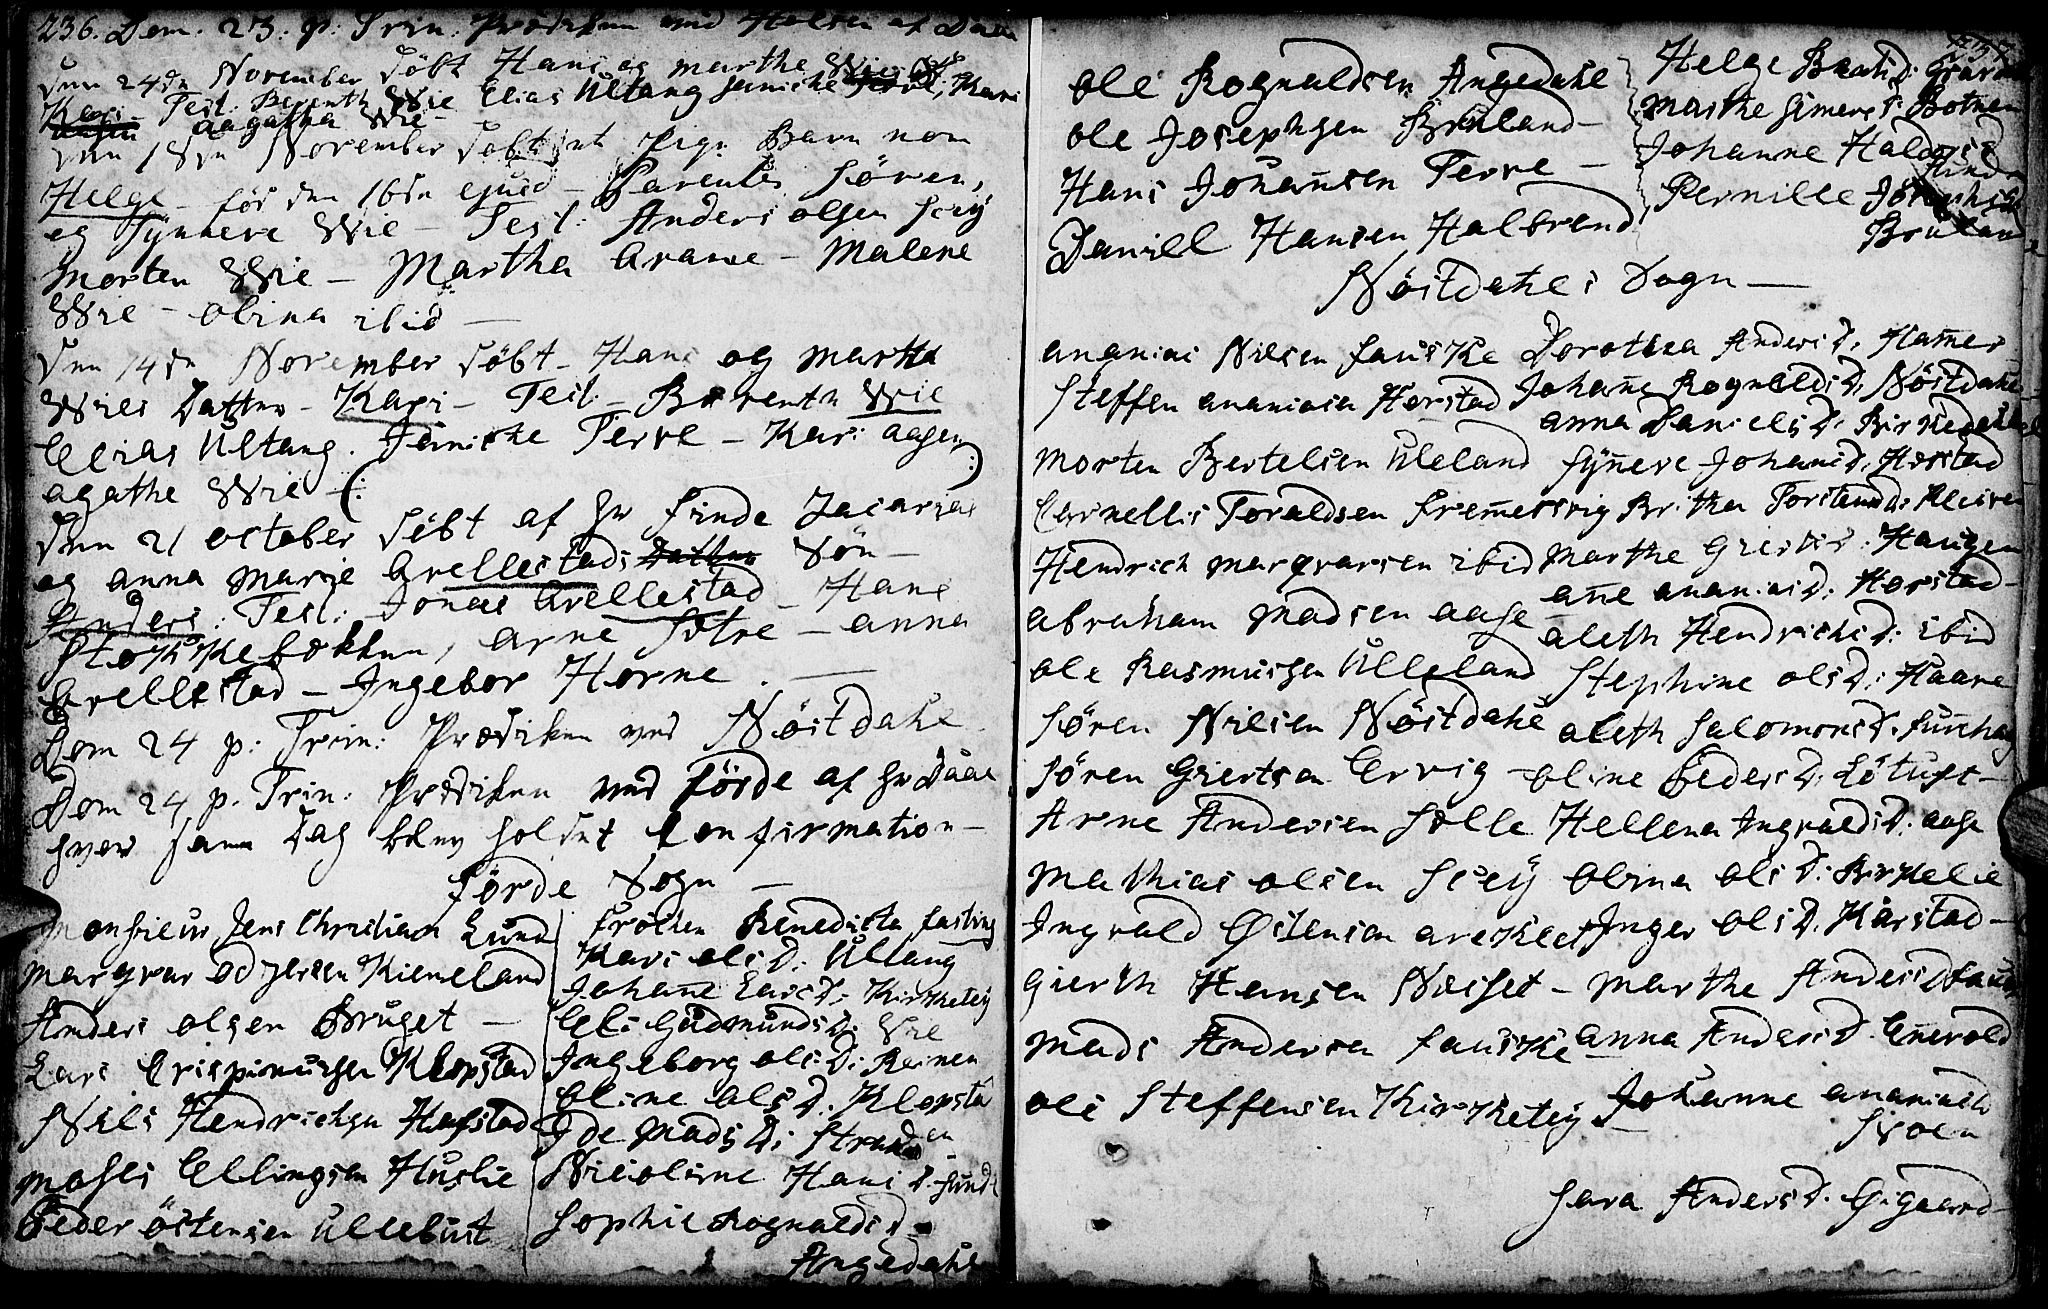 236. Dom. 23. p. Trin. Prædiken ved Holsen af Daae
den 24de November döbt Hans og Marthe Wies
Kari Test: Berenth Wie Elias Ultang Jenicke Terve, Kari
Aasen Aagatha Wie -
den November döbt Pige Barn nom
Helge - föd den 16de ejusd - Parentes Sören
og Synneve Wie - Test: Anders Olsen
Morten Wie - Martha - Malene
Wie - Olina ibid -
den 14de November döbt - Hans og Marthe
Wies Datter - Kari - Test - Berenth Wie
Elias Ultang. Jenicke Terve - Kari Aasen
Agathe Wie - (: :)
den 21 October döbt af Hr Finde Zacarias
og Anna Marie Grellestads Datter Sön -
Anders: Test: Jonas Grellestad - Hans
Störkkebakken, Arne - Anna
Grellestad - Ingebor Horne. -
Dom 24 p: Trin: Prædiken ved Nöstdahl
Dom 24 p. Trin: Prædiken ved Förde af Hr Daae
hvor samme Dag blev holdet Confirmation -
Förde Sogn -
Monsieur Jens Christian Lund
Margvar Kiemeland
Anders Olsen Bruget -
Lars Crispinusen Klopstad
Nils Hendrichsen Hafstad
Moses Ellingsen Huslie
Peder Östensen Ullebust
Fröken Benedicta Fasting
Kari Ols D: Ultang
Johanne Lars D: Kirketeig
Eli Gudmunds D: Wie
Ingeborg Ols D: Reinen
Oline Ols D. Klopsta
Ide Mads D: Stranden
Nicoline Hans D. Sunde
Sophie Rognalds D
Angedahl
Ole Rognaldsen Angedahl
Ole Josephsen Bruland -
Hans Johansen Terve -
Daniel Hansen Halbrend
Helge
Marthe D: Botnen
Johanne Haldors D
Pernille Josephs D
Bruland
Nöstdahls Sogn -
Ananias Nilsen Fauske
Steffen Ananiasen Horstad
Morten Bertelsen Uleland
Cornellis Toraldsen Fremersvig
Hendrich Margvarsen ibid
Abraham Madsen Aase -
Ole Rasmusen Ulleland
Sören Nilsen Nöstdahl
Sören Giertsen Ervig -
Arne Andersen Solle
Mathias Olsen
Ingvald Östensen Areklet
Gierth Hansen Næsset -
Mads Andersen Fauske
Ole Steffensen Kirketeig
Dorothea Anders D. Hammer
Johanne Rognalds D. Nöstdahl
Anna Daniels D. Birkedahl
Synneve Johans D. Horstad
Britha Torstens D: Kleiven
Marthe Gierts D: Haugen
Anne Ananias D: Horstad -
Aleth Hendrichs D: ibid
Stephine Ols D: Haare
Aleth Salomons D.
Oline Peders D: Lötuft -
Hellena Ingvalds D. Aase
Olina Ols D: Birkelie
Inger Ols D. Karstad -
Marthe Anders D
Anna Anders D. Enevold
Johanne Ananias D
Svoen
Sara Anders D. Ögaard